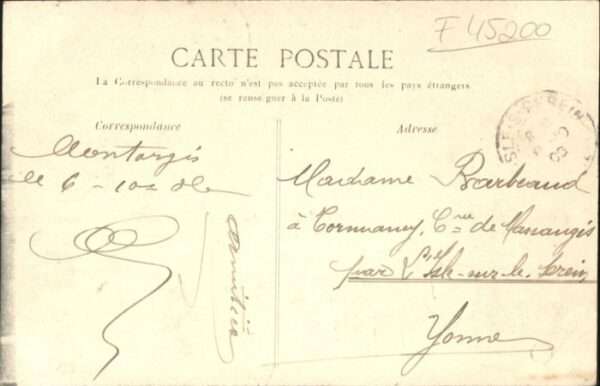 F 45200
CARTE POSTALE
La Correspondance au recto n'est pas acceptée par tous les pays étrangers
(se renseigner à la Poste)
Correspondance
Adresse
Montargis
le 6-10
Amitiés
Madame Barbeaud
à Cormancy, Cne de Massangis
par L'Isle-sur-le-Serein
Yonne